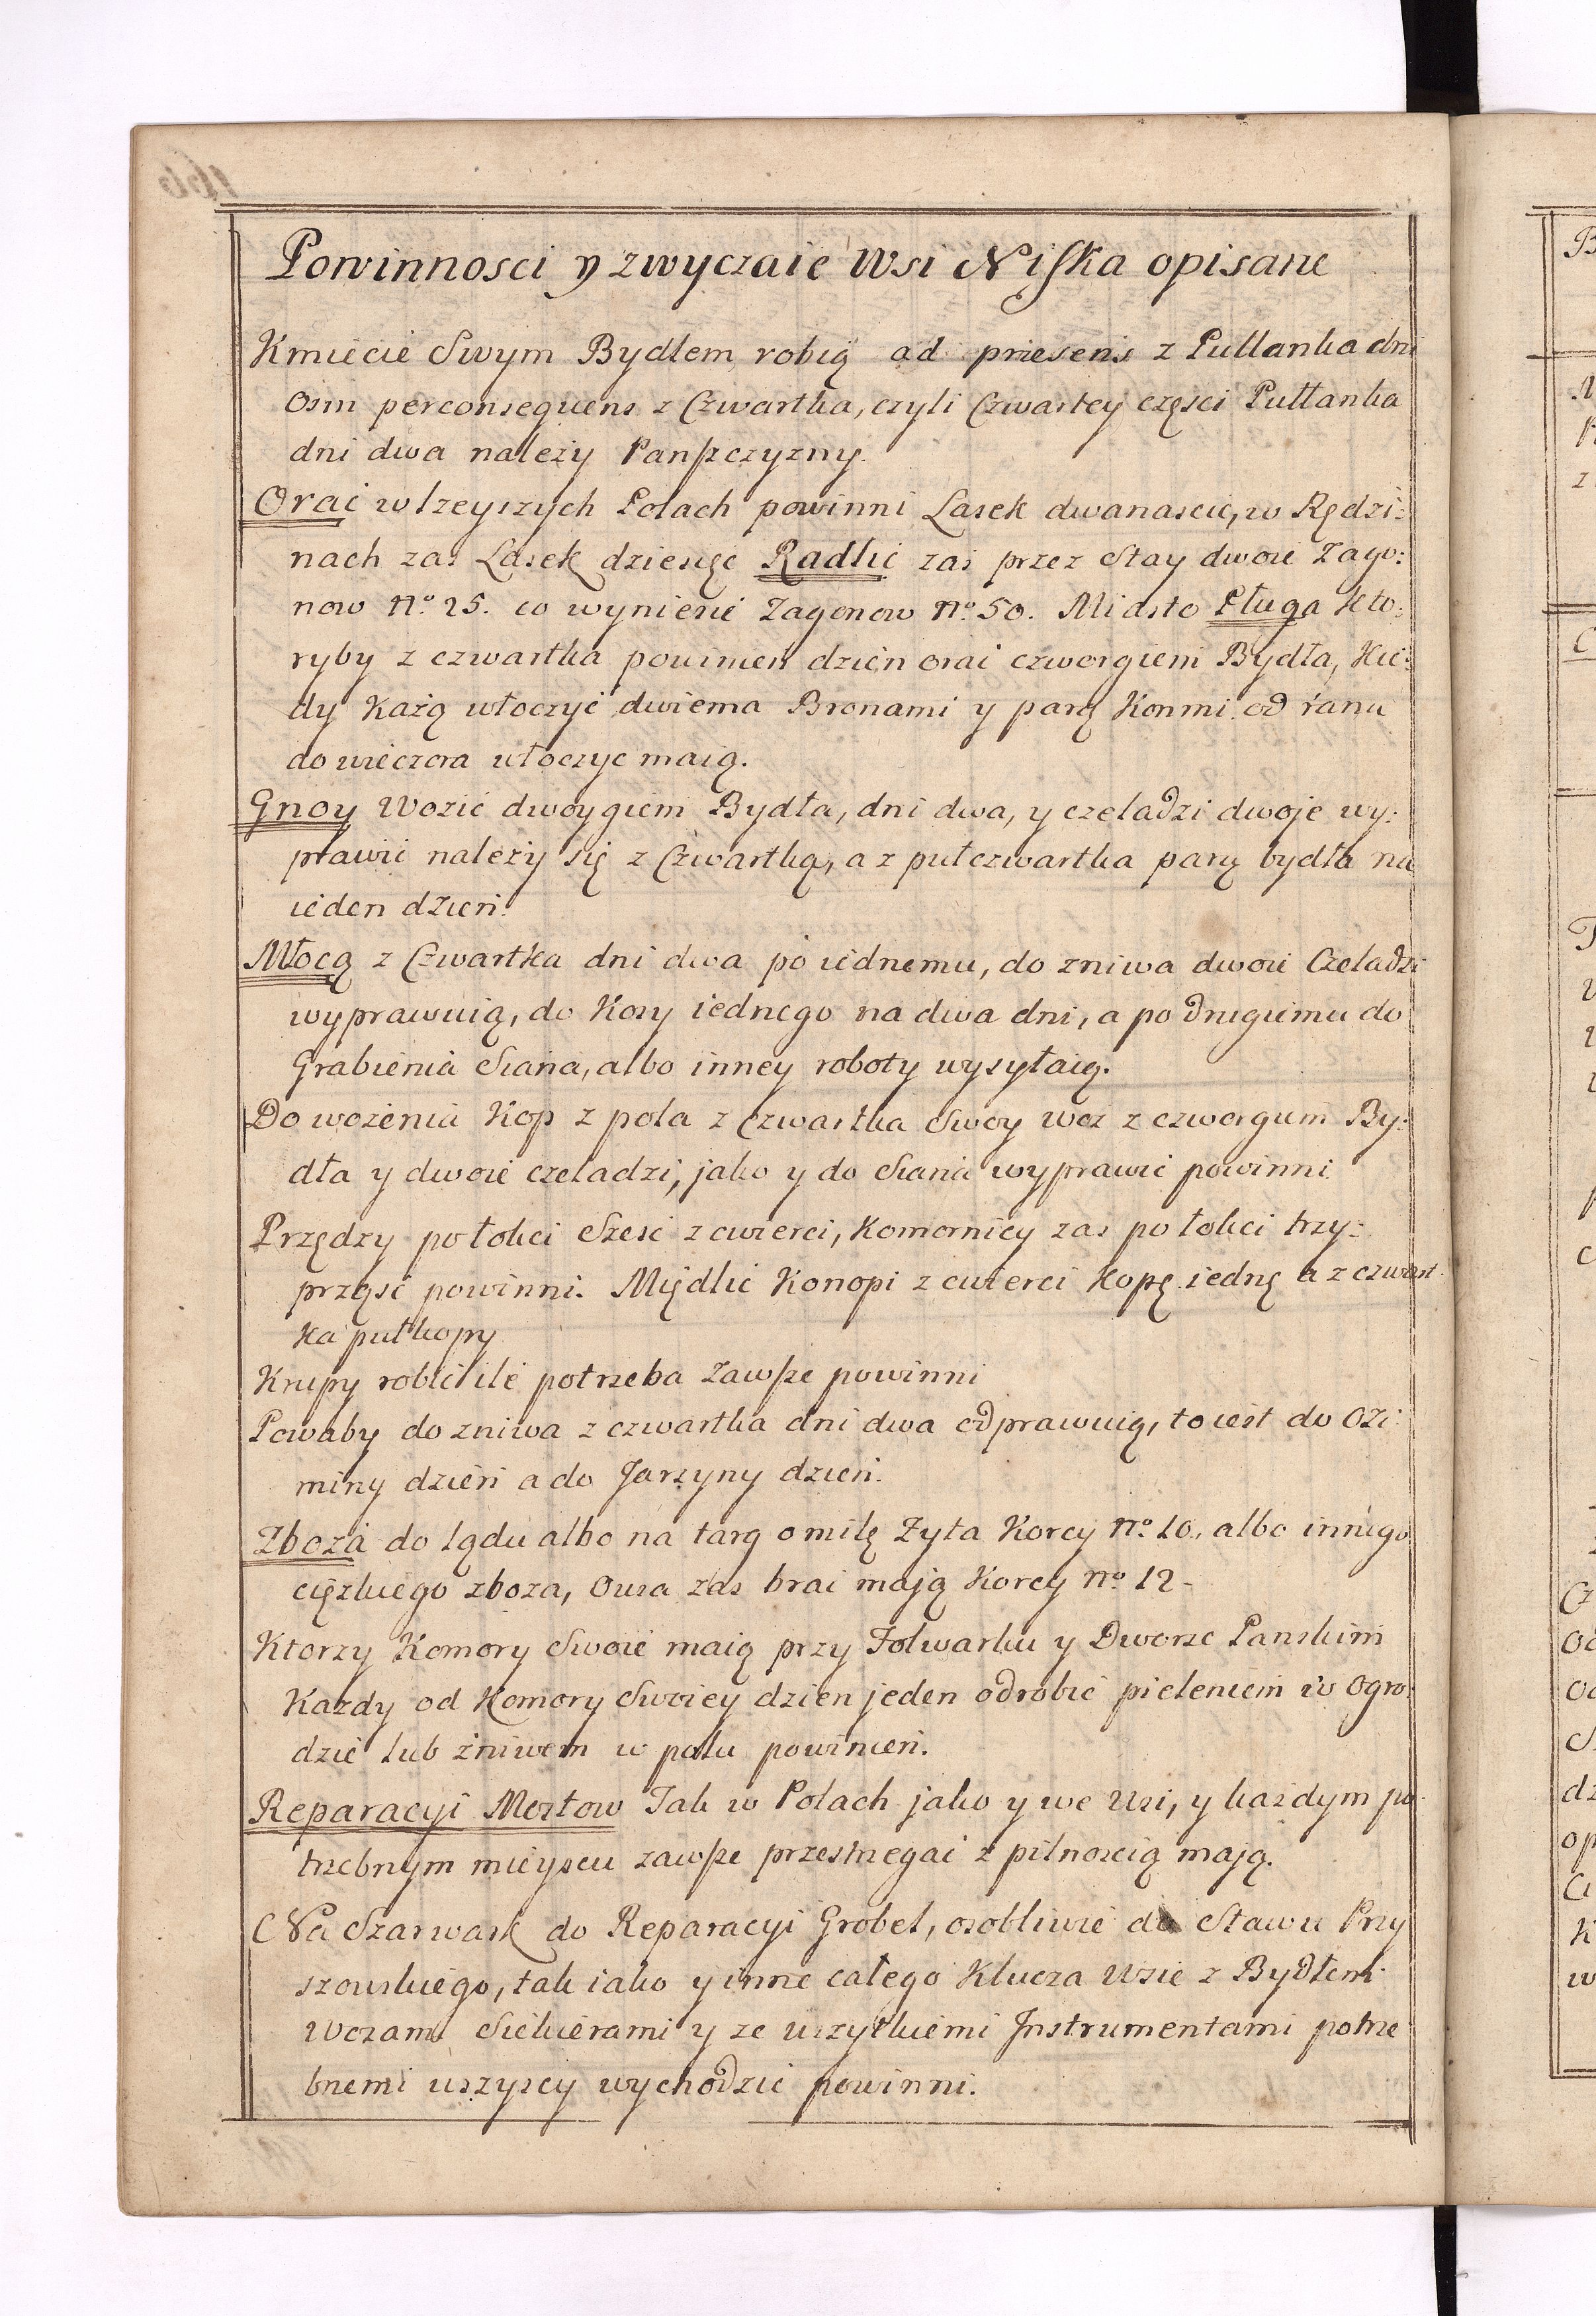 Powinnosci y zwyczaie Wsi Niſka opisane
Kmiecie Swym Bydłem robią ad priesens z Pułłanka dni
Osm perconsequens z Czwartka, czyli Czwartey części Pułłanka
dni dwa należy Panſzczyzny.
Orać w lzeyszych Polach powinni Lasek dwanascie, w Rędzi:
nach zas Lasek dziesięć Radlić zas przez Stay dwoie Zago:
now No. 25. co wyniesie Zagonow No. 50. Miasto Pługa kto:
ryby z czwartka powinien dzień orać czworgiem Bydła, kie:
dy każą włoczyć dwiema Bronami y parą Konmi od rana
do wieczora włoczyc maią.
Gnoy Wozić dwoygiem Bydła, dni dwa, y czeladzi dwoje wy:
prawić należy się z Czwartką, a z pułczwartka parą bydła na
ieden dzień.
Młocą z Czwartka dni dwa po iednemu, do zniwa dwoie Czeladzi
wyprawuią, do Kosy iednego na dwa dni, a po drugiemu do
Grabienia Siana, albo inney roboty wysyłaią.
Do wożenia Kop z pola z czwartka Swoy woz z czworgiem By:
dła y dwoie czeladzi, jako y do Siana wyprawić powinni
Przędzy po łokci Sześć z cwierci, Komornicy zas po łokci trzy:
prząść powinni. Międlić Konopi z cwierci kopę iednę a z czwart
ka pułkopy
Krupy robić ile potrzeba Zawſze powinni
Powaby do zniwa z czwartka dni dwa odprawuią, to iest do Ozi:
miny dzień a do Jarzyny dzień.
Zboża do lądu albo na targ o milę Zyta Korcy No. 10. albo innego
cięzkiego zboza, Owsa zas brać mają Korcy No. 12
Ktorzy Komory Swoie maią przy Folwarku y Dworze Panskim
Kazdy od Komory Swoiey dzien jeden odrobić pieleniem w Ogro:
dzie lub żniwem w polu powinień.
Reparacyi Mostow Tak w Polach jako y we Wsi, y każdym po:
trzebnym mieyscu zawſze przestrzegać z pilnoscią mają.
Na Szarwark do Reparacyi Grobel, osobliwie do Stawu Przy
szowskiego, tak iako y inne całego Klucza Wsie z Bydłem
Wozami Siekierami y ze wszytkiemi Instrumentami potrze
bnemi wszyscy wychodzić powinni.